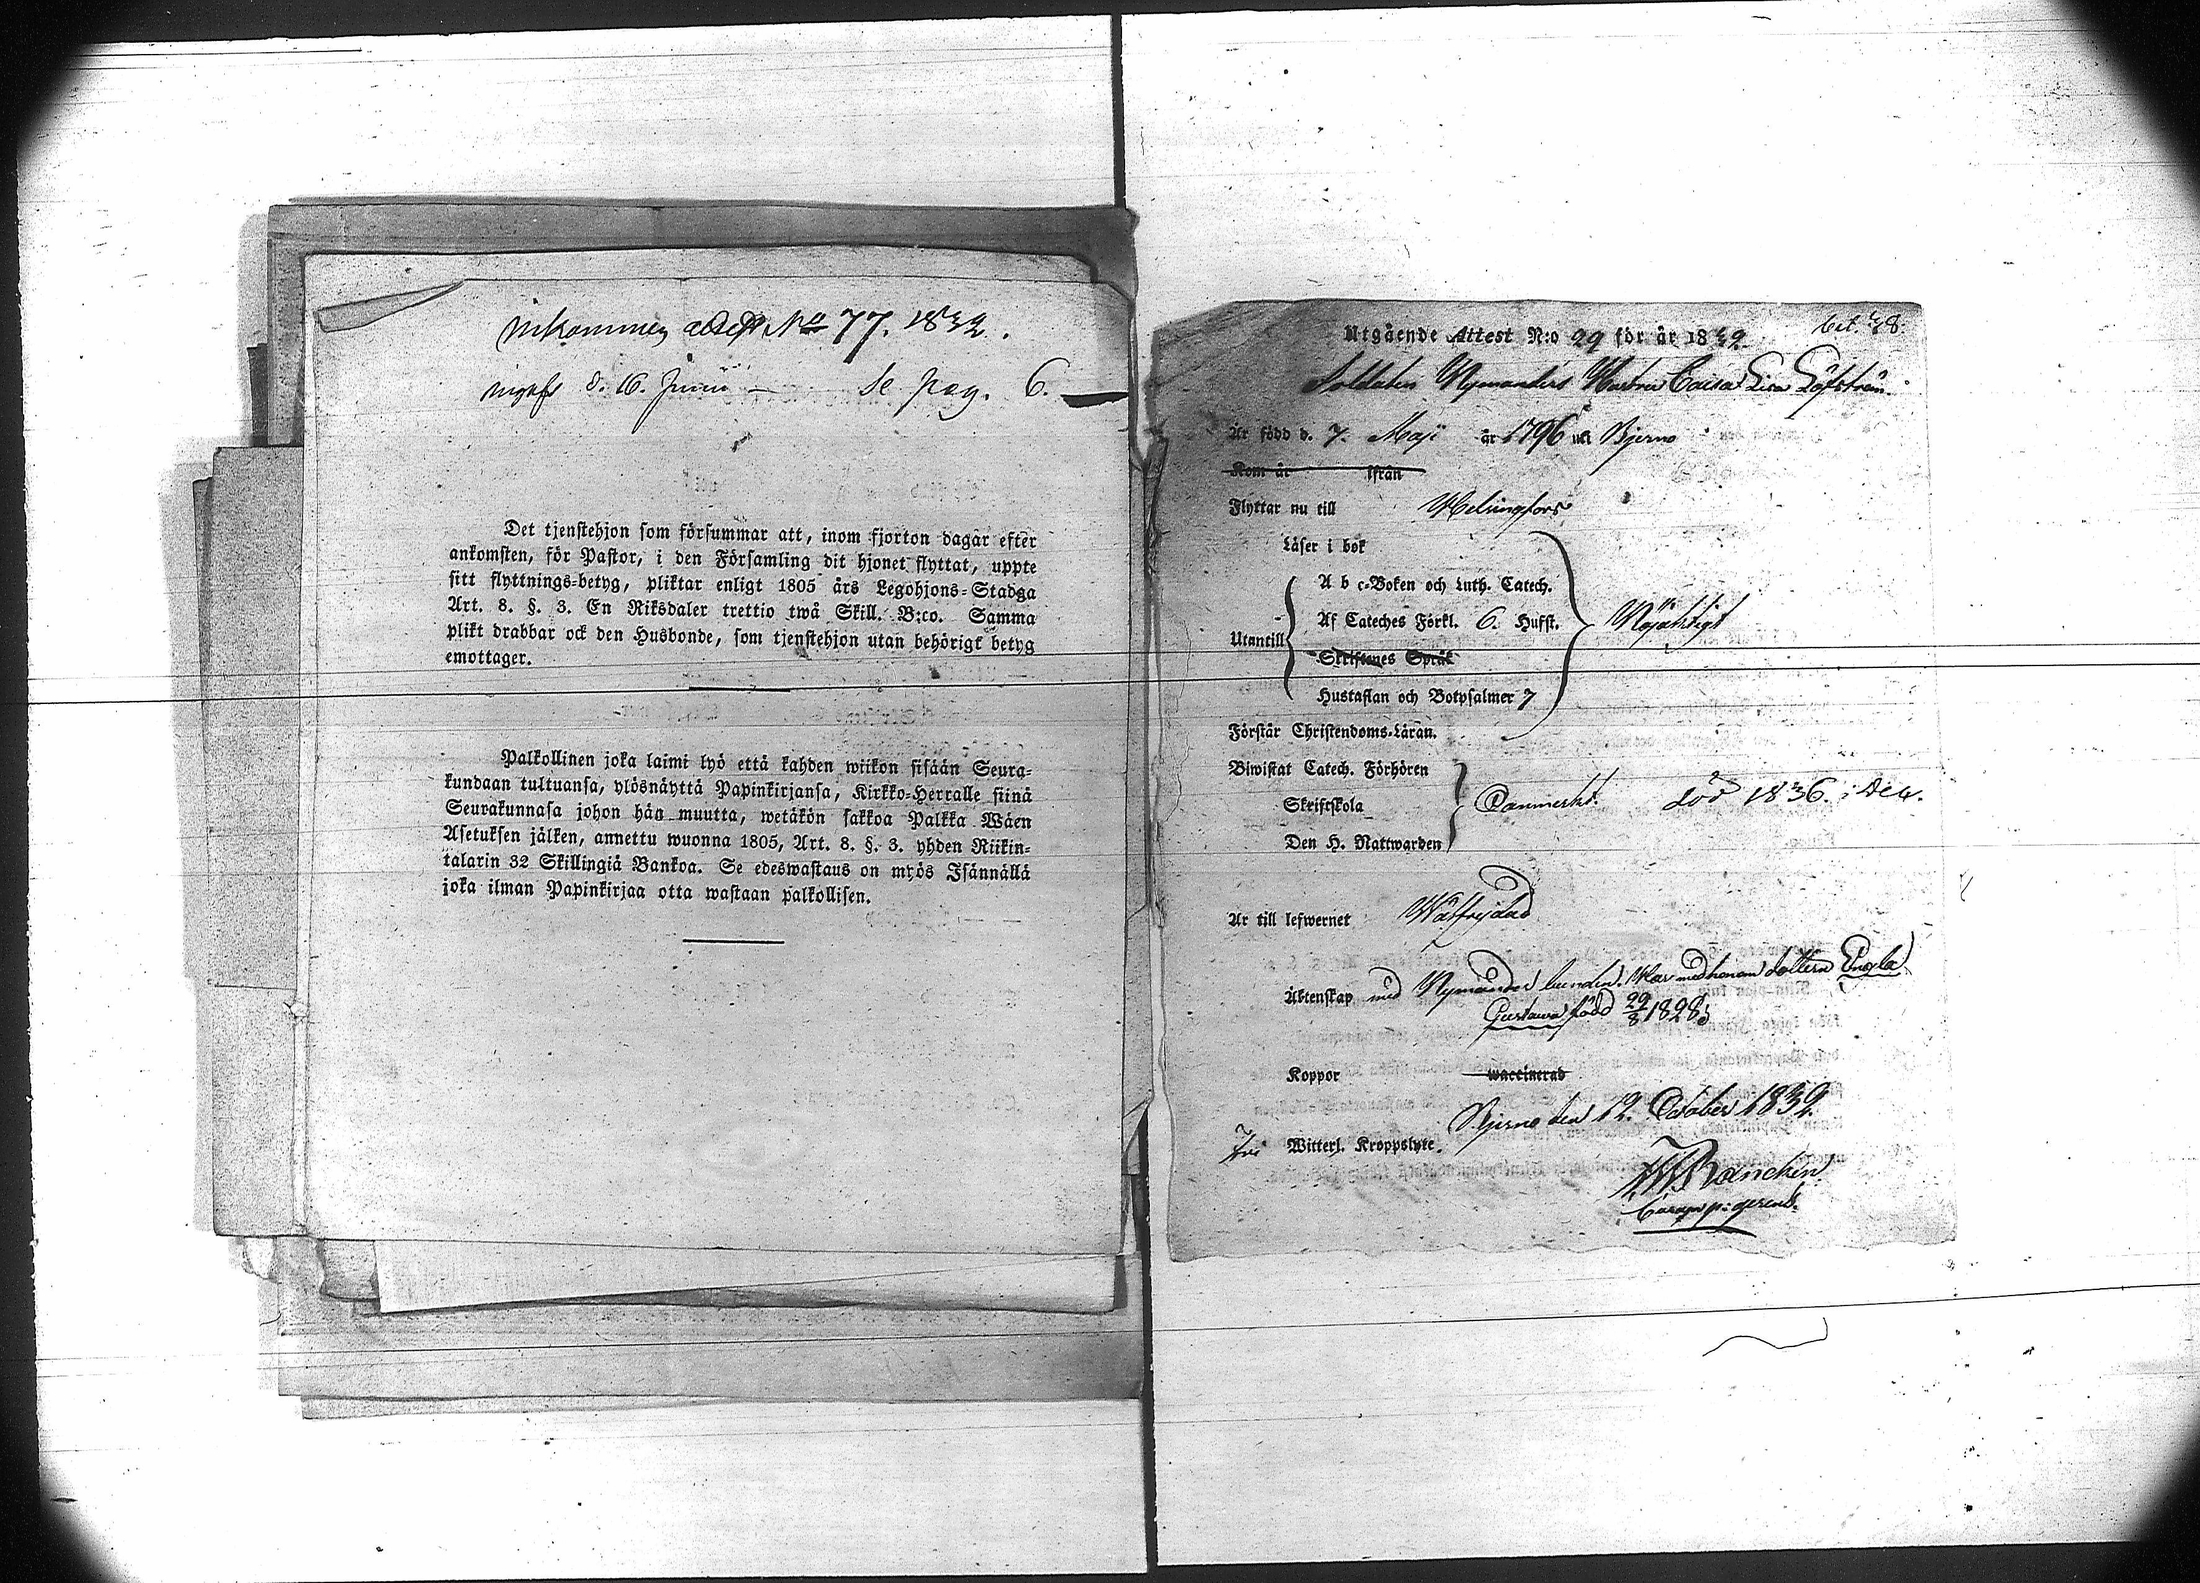 inkommen attest No 77. 1832.
ingifs d. 16. Junii — se pag. 6.
Det tjenstehjon som försummar att, inom fjorton dagar efter
ankomsten, för Pastor, i den Församling dit hjonet flyttat, uppte
sitt flyttnings-betyg, pliktar enligt 1805 års Legohjons-Stadga
Art. 8. §. 3. En Riksdaler trettio twå Skill. B:co. Samma
plikt drabbar ock den Husbonde, som tjenstehjon utan behörigt betyg
emottager.
Palkollinen joka laimi lyö että kahden wiikon sisään Seura-
kundaan tultuansa, ylösnäyttä Papinkirjansa, Kirkko-Herralle siinä
Seurakunnasa johon hän muutta, wetäkön sakkoa Palkka Wäen
Asetuksen jälken, annettu wuonna 1805, Art. 8. §. 3. yhden Riikin-
talarin 32 Skillingiä Bankoa. Se edeswastaus on myös Isännällä
joka ilman Papinkirjaa otta wastaan palkollisen.
Utgående Attest N:o 29 för år 1832
Soldaten Nymanders Hustru Caisa Lisa Löfström
Är född d. 7. Maji år 1796 uti Bjerno
Kom år ifrån
Flyttar nu till Helsingfors
Läser i bok
A b c-Boken och Luth. Catech.
Af Cateches Förkl. 6. Hufst. Nöjaktigt
Utantill
Skriftenes Språk
Hustaflan och Botpsalmer 7
Förstår Christendoms-Läran.
Biwistat Catech. Förhören
Skriftskola Oanmerkt. död 1836. i Dec.
Den H. Nattwarden
Är till lefwernet Wälfrejdad
Äktenskap med Nymander bunden. Har med honom dottern Engla
Gustawa född 29/8 1828;
Koppor waccinerad
Bjerno den 12. October 1832
Fri Witterl. Kroppslyte.
Rancken
p: gerens.